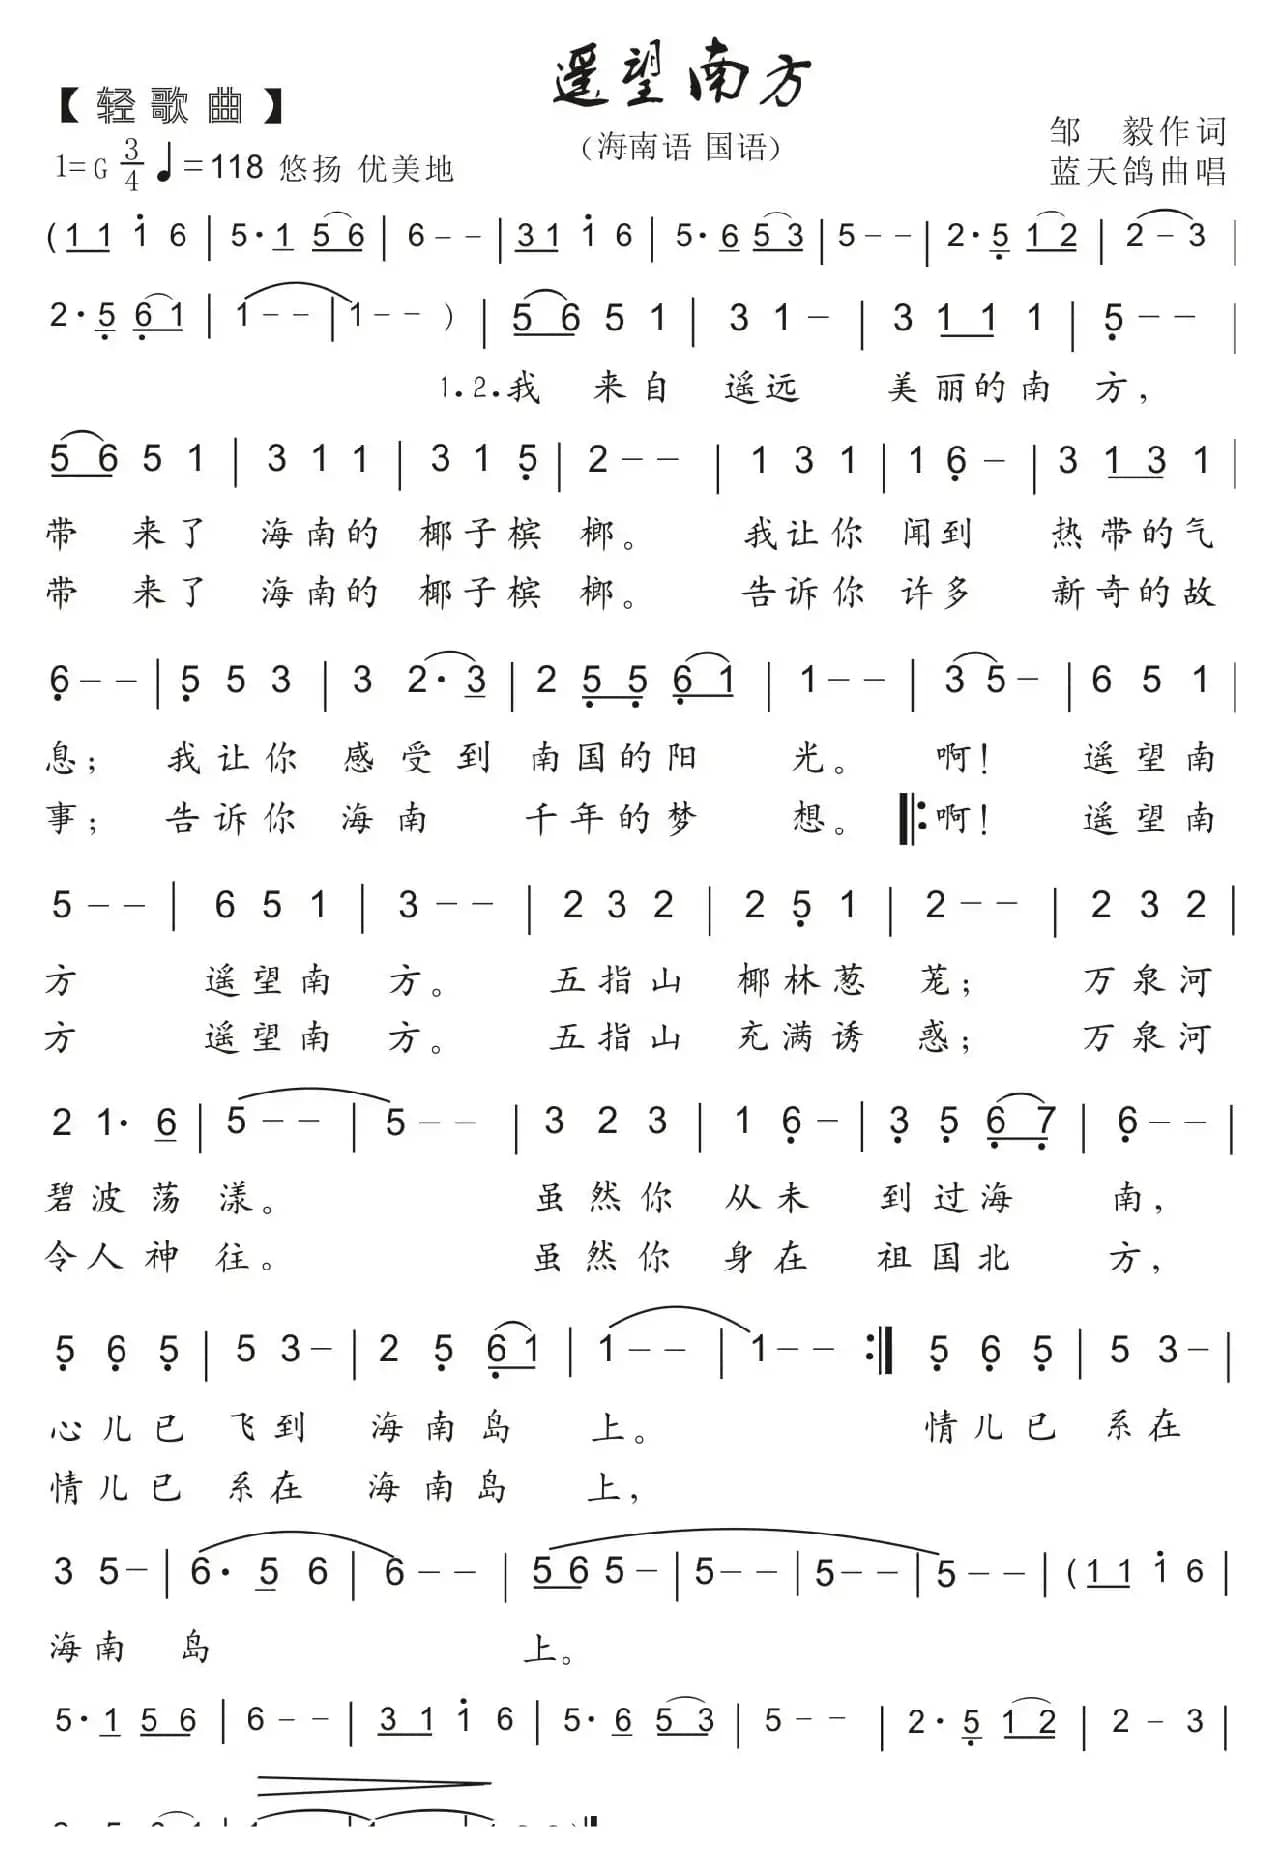 遥望南方
【轻歌曲】
(海南语 国语)
邹 毅作词
1=G 3/4 ♩=118 悠扬 优美地
蓝天鸽曲唱
(1 1 i 6 | 5· 1 5 6 | 6 - - | 3 1 i 6 | 5· 6 5 3 | 5 - - | 2· 5 1 2 | 2 - 3 |
2· 5 6 1 | 1 - - | 1 - - ) | 5 6 5 1 | 3 1 - | 3 1 1 1 | 5 - - |
1.2.我 来自 遥远 美丽的南 方，
5 6 5 1 | 3 1 1 | 3 1 5 | 2 - - | 1 3 1 | 1 6 - | 3 1 3 1 |
带 来了 海南的 椰子槟 榔。 我让你 闻到 热带的气
带 来了 海南的 椰子槟 榔。 告诉你 许多 新奇的故
6 - - | 5 5 3 | 3 2· 3 | 2 5 5 6 1 | 1 - - | 3 5 - | 6 5 1 |
息； 我让你 感受到 南国的阳 光。 啊！ 遥望南
事； 告诉你 海南 千年的梦 想。 ‖: 啊！ 遥望南
5 - - | 6 5 1 | 3 - - | 2 3 2 | 2 5 1 | 2 - - | 2 3 2 |
方 遥望南 方。 五指山 椰林葱 茏； 万泉河
方 遥望南 方。 五指山 充满诱 惑； 万泉河
2 1· 6 | 5 - - | 5 - - | 3 2 3 | 1 6 - | 3 5 6 7 | 6 - - |
碧波荡 漾。 虽然你 从未 到过海 南，
令人神 往。 虽然你 身在 祖国北 方，
5 6 5 | 5 3 - | 2 5 6 1 | 1 - - | 1 - - :‖ 5 6 5 | 5 3 - |
心儿已 飞到 海南岛 上。 情儿已 系在
情儿已 系在 海南岛 上，
3 5 - | 6· 5 6 | 6 - - | 5 6 5 - | 5 - - | 5 - - | 5 - - | (1 1 i 6 |
海南 岛 上。
5· 1 5 6 | 6 - - | 3 1 i 6 | 5· 6 5 3 | 5 - - | 2· 5 1 2 | 2 - 3 |